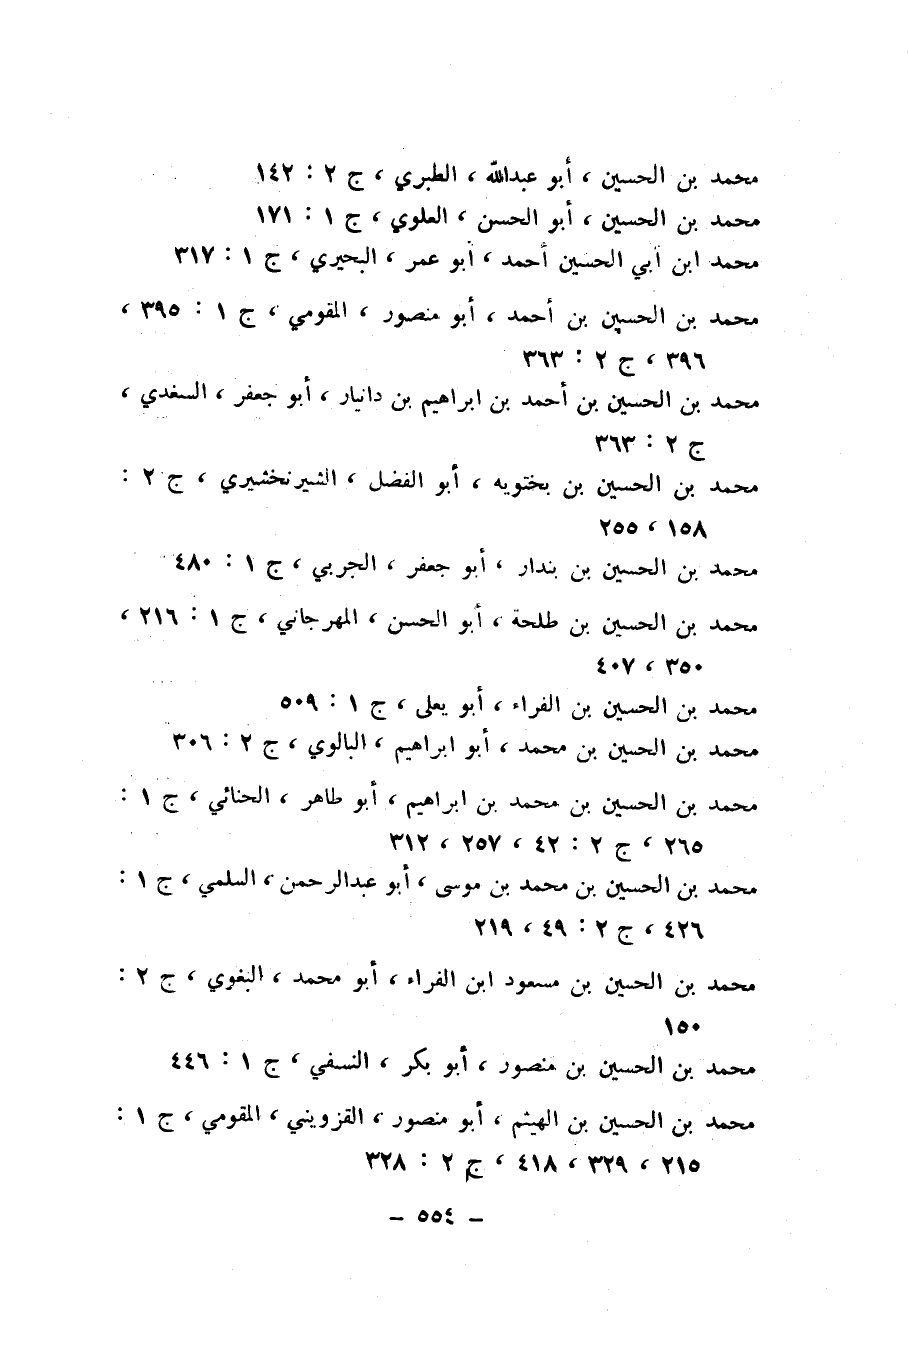 محمد بن الحسين ، أبو عبدالله ، الطبري ، ج ٢ : ١٤٢
محمد بن الحسين ، أبو الحسن ، العلوي ، ج ١ : ١٧١
محمد ابن أبي الحسين أحمد ، أبو عمر ، البحيري ، ج ١ : ٣١٧
محمد بن الحسين بن أحمد ، أبو منصور ، المقومي ، ج ١ : ٣٩٥ ،
٣٩٦ ، ج ٢ : ٣٦٣
محمد بن الحسين بن أحمد بن ابراهيم بن دانيار ، أبو جعفر ، السغدي ،
ج ٢ : ٣٦٣
محمد بن الحسين بن بختويه ، أبو الفضل ، الشيرنخشيري ، ج ٢ :
١٥٨ ، ٢٥٥
محمد بن الحسين بن بندار ، أبو جعفر ، الجربي ، ج ١ : ٤٨٠
محمد بن الحسين بن طلحة ، أبو الحسن ، المهرجاني ، ج ١ : ٢١٦ ،
٣٥٠ ، ٤٠٧
محمد بن الحسين بن الفراء ، أبو يعلى ، ج ١ : ٥٠٩
محمد بن الحسين بن محمد ، أبو ابراهيم ، البالوي ، ج ٢ : ٣٠٦
محمد بن الحسين بن محمد بن ابراهيم ، أبو طاهر ، الحنائي ، ج ١ :
٢٦٥ ، ج ٢ : ٤٢ ، ٢٥٧ ، ٣١٢
محمد بن الحسين بن محمد بن موسى ، أبو عبدالرحمن ، السلمي ، ج ١ :
٤٢٦ ، ج ٢ : ٤٩ ، ٢١٩
محمد بن الحسين بن مسعود ابن الفراء ، أبو محمد ، البغوي ، ج ٢ :
١٥٠
محمد بن الحسين بن منصور ، أبو بكر ، النسفي ، ج ١ : ٤٤٦
محمد بن الحسين بن الهيثم ، أبو منصور ، القزويني ، المقومي ، ج ١ :
٢١٥ ، ٣٢٩ ، ٤١٨ ، ج ٢ : ٣٢٨
– ٥٥٤ –